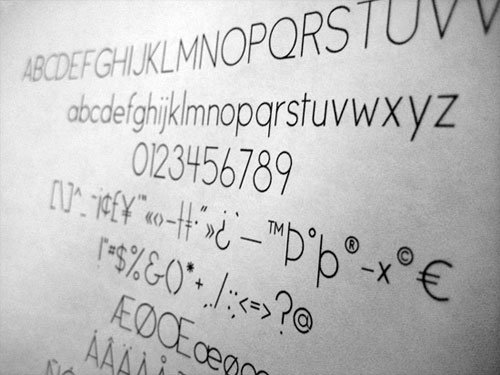 ABCDEFGHIJKLMNOPQRSTUV
abcdefghijklmnopqrstuvwxyz
0123456789
[\]^_¯¡¢£¥¨"«‹›–‡·"»¿¸`—™Þ°þ®-×©€
!"#$%&()*+,./:;<=>?@
ÆØŒæø
ÁÂÄÀÅ